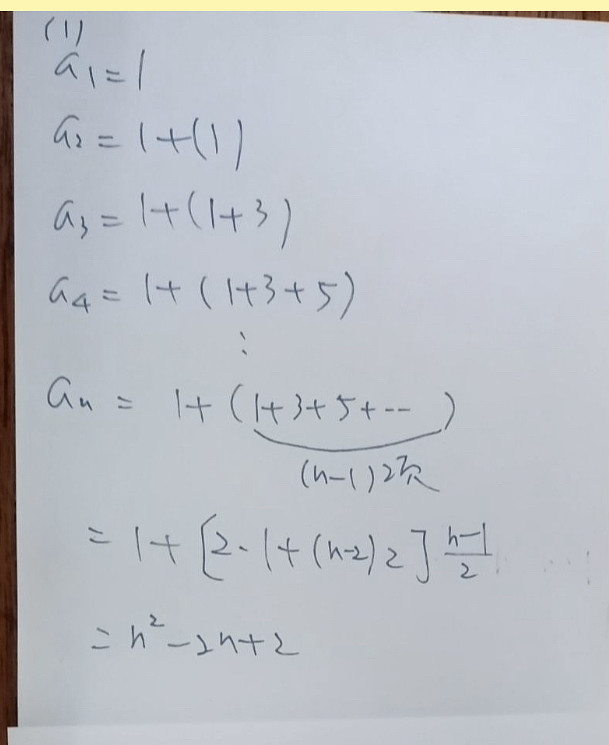 (1)
a₁ = 1
a₂ = 1+(1)
a₃ = 1+(1+3)
a₄ = 1+(1+3+5)
⋮
aₙ = 1+(1+3+5+--)
(n-1)项
= 1+[2·1+(n-2)2] (n-1)/2
= n²-2n+2